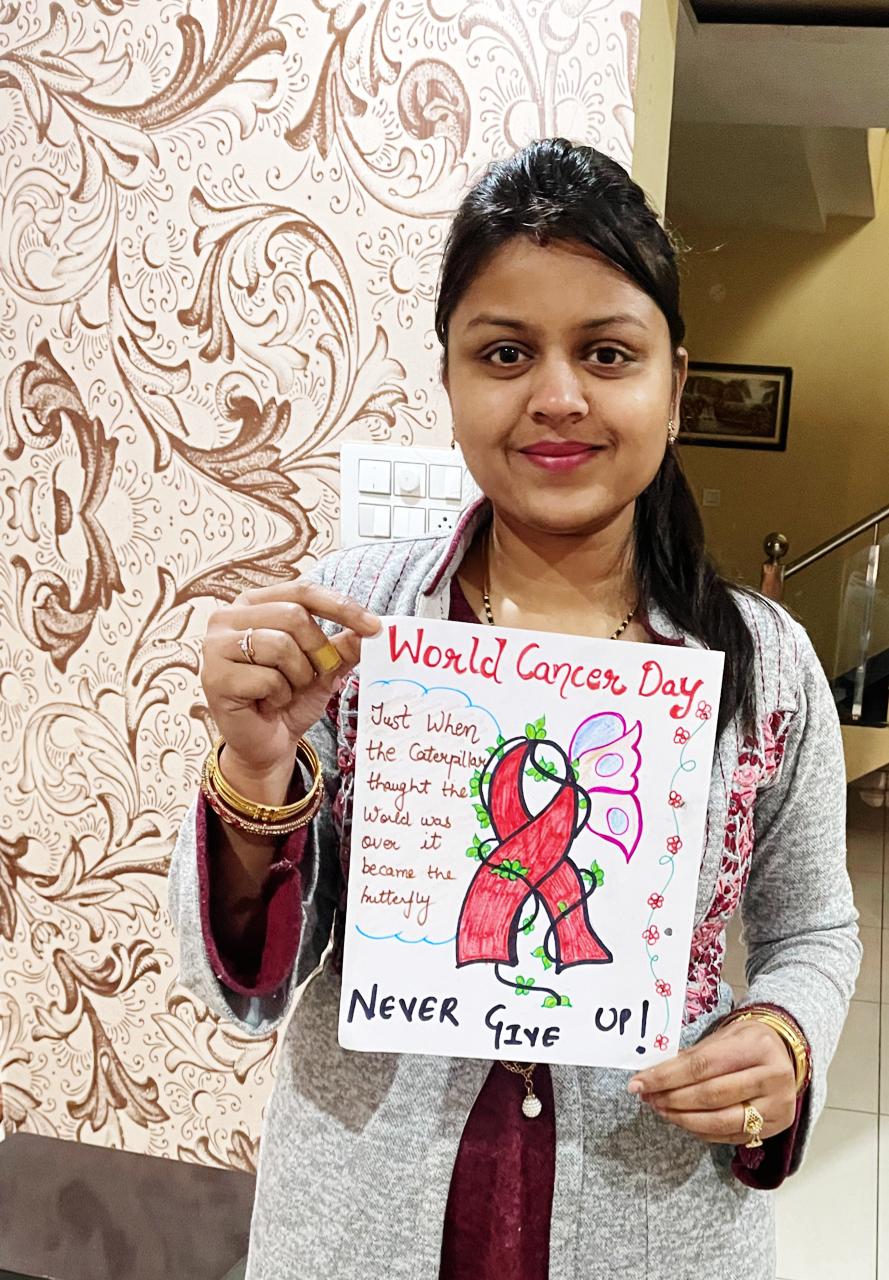 World Cancer Day
Just When
the Caterpillar
thought the
World was
over it
became the
butterfly
NEVER GIVE UP!